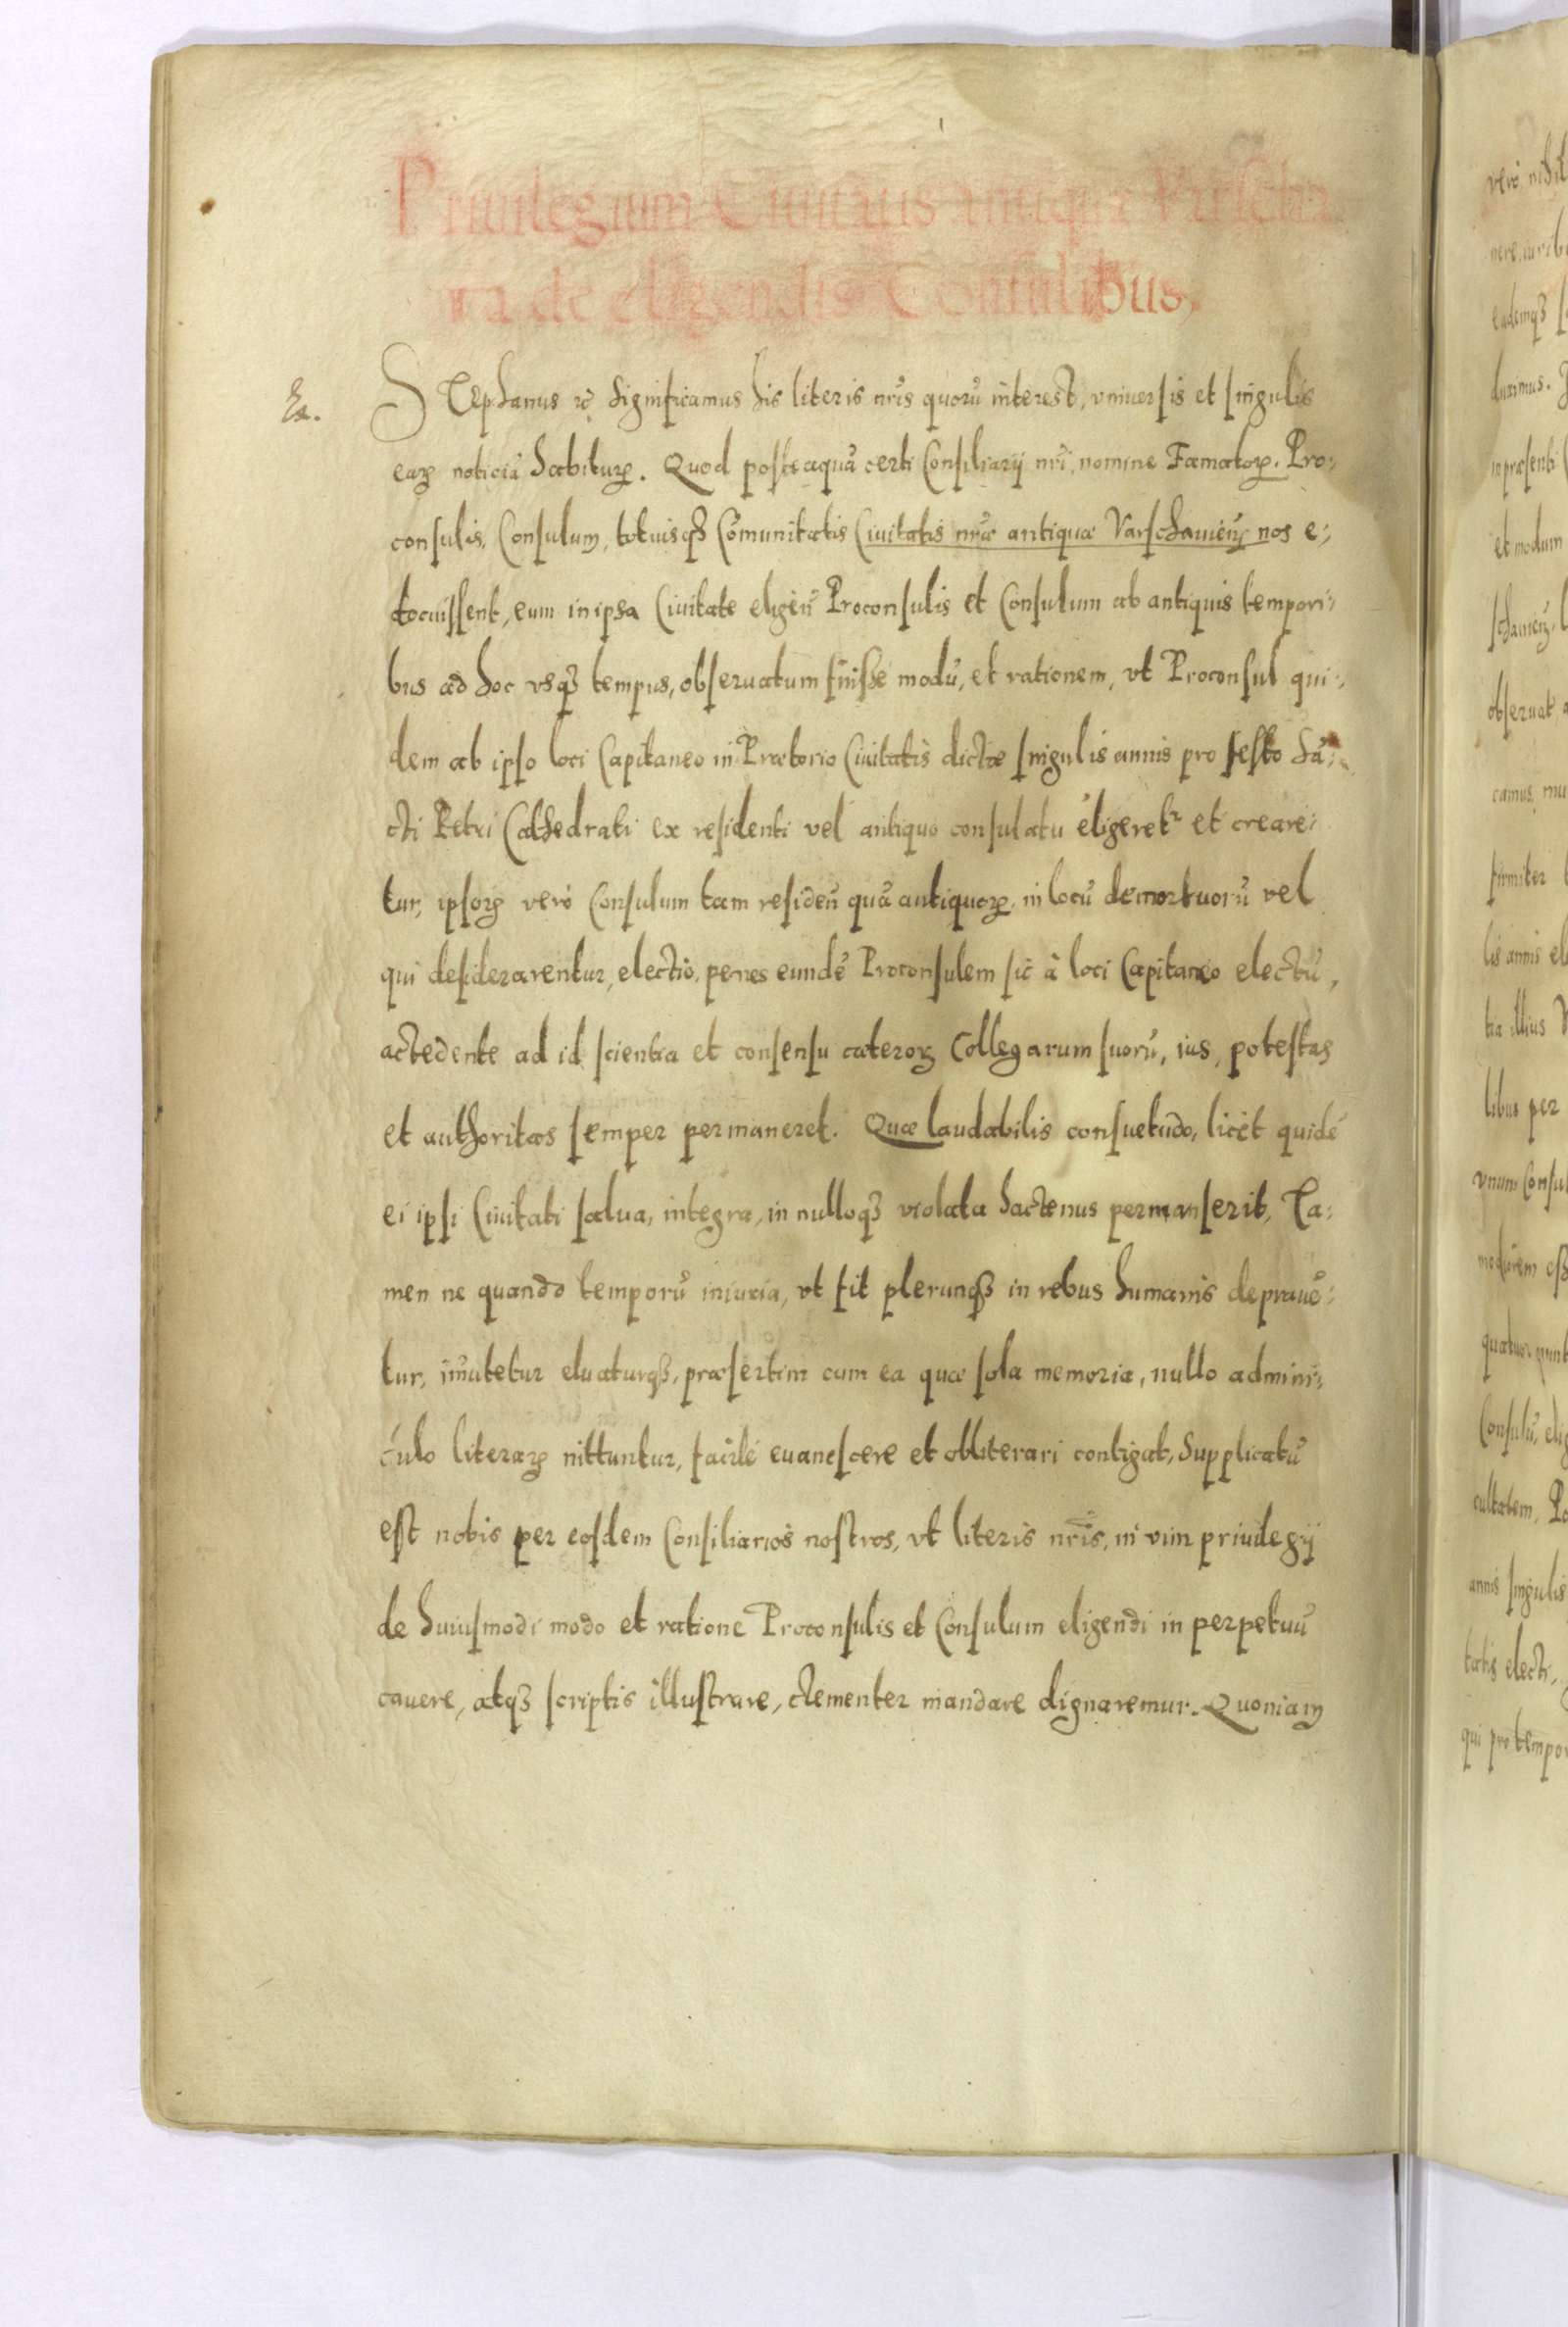 Priuilegium Ciuitatis antiquæ Varscha
uia de eligendis Consulibus,
Ex.
STephanus ꝛc Significamus his literis nr̃is quorũ interest, vniuersis et singulis
earꝫ noticiã habiturꝫ. Quod posteaquã certi Consiliarij nr̃i, nomine Famatorꝫ. Pro:,
consulis, Consulum, totiusqꝫ Cõmunitatis Ciuitatis nr̃æ antiquæ Varschauieñ nos e:,
docuissent, eum in ipsa Ciuitate eligeñ Proconsulis et Consulum ab antiquis tempori:,
bus ad hoc vsqꝫ tempus, obseruatum fuisse modũ, et rationem, vt Proconsul qui:,
dem ab ipso loci Capitaneo in Prætorio Ciuitatis dictæ singulis annis pro festo Sã:,
cti Petri Cathedrati ex residenti vel antiquo consulatu eligeretᷣ et creare:
tur, ipsorꝫ verò Consulum tam resideñ quã antiquorꝫ, in locũ demortuorũ vel
qui desiderarentur, electio, penes eundẽ Proconsulem sic à loci Capitaneo electũ,
accedente ad id scientia et consensu cæterorꝫ Collegarum suorũ, ius, potestas
et authoritas semper permaneret. Quæ laudabilis consuetudo, licèt quidẽ
ei ipsi Ciuitati salua, integra, in nulloqꝫ violata hactenus permanserit, Ta:
men ne quando temporũ iniuria, vt fit plerunqꝫ in rebus humanis deprauẽ:
tur, im̃utetur eluaturqꝫ, præsertim cum ea quæ sola memoria, nullo admini:,
culo literarꝫ nittuntur, facilè euanescere et obliterari contigat, Supplicatũ
est nobis per eosdem Consiliarios nostros, vt literis nr̃is, in vim priuilegij
de huiusmodi modo et ratione Proconsulis et Consulum eligendi in perpetuũ
cauere, atqꝫ scriptis illustrare, clementer mandare dignaremur. Quoniam